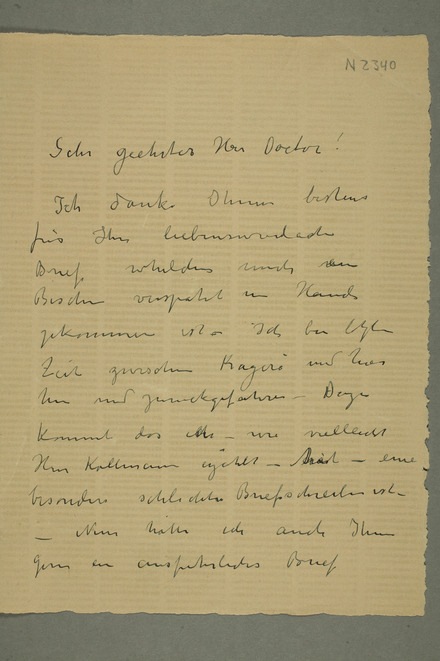 N 2340
Sehr geehrter Herr Doctor!
Ich danke Ihnen bestens
für Ihr liebenswürdiche
Brief welches mich ein
Bischen verspätet in Hände
gekommen ist. Ich bin letzte
Zeit zwischen Kragerö und hier
hin und zurückgefahren – Dazu
kommt das ich – wie vielleicht
Herr Kollmann – – eine
besonders schlechter Briefschreiber ist –
– Nun hatte ich auch Ihnen
gern en ausfuhrliches Brief